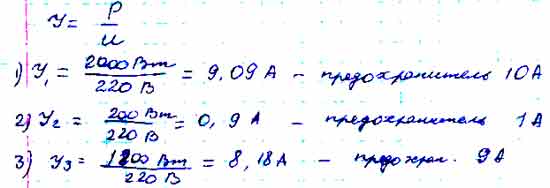 У = P/U
1) У₁ = 2000 Вт/220 В = 9,09 А – предохранитель 10А
2) У₂ = 200 Вт/220 В = 0,9 А – предохранитель 1А
3) У₃ = 1800 Вт/220 В = 8,18 А – предохран. 9А